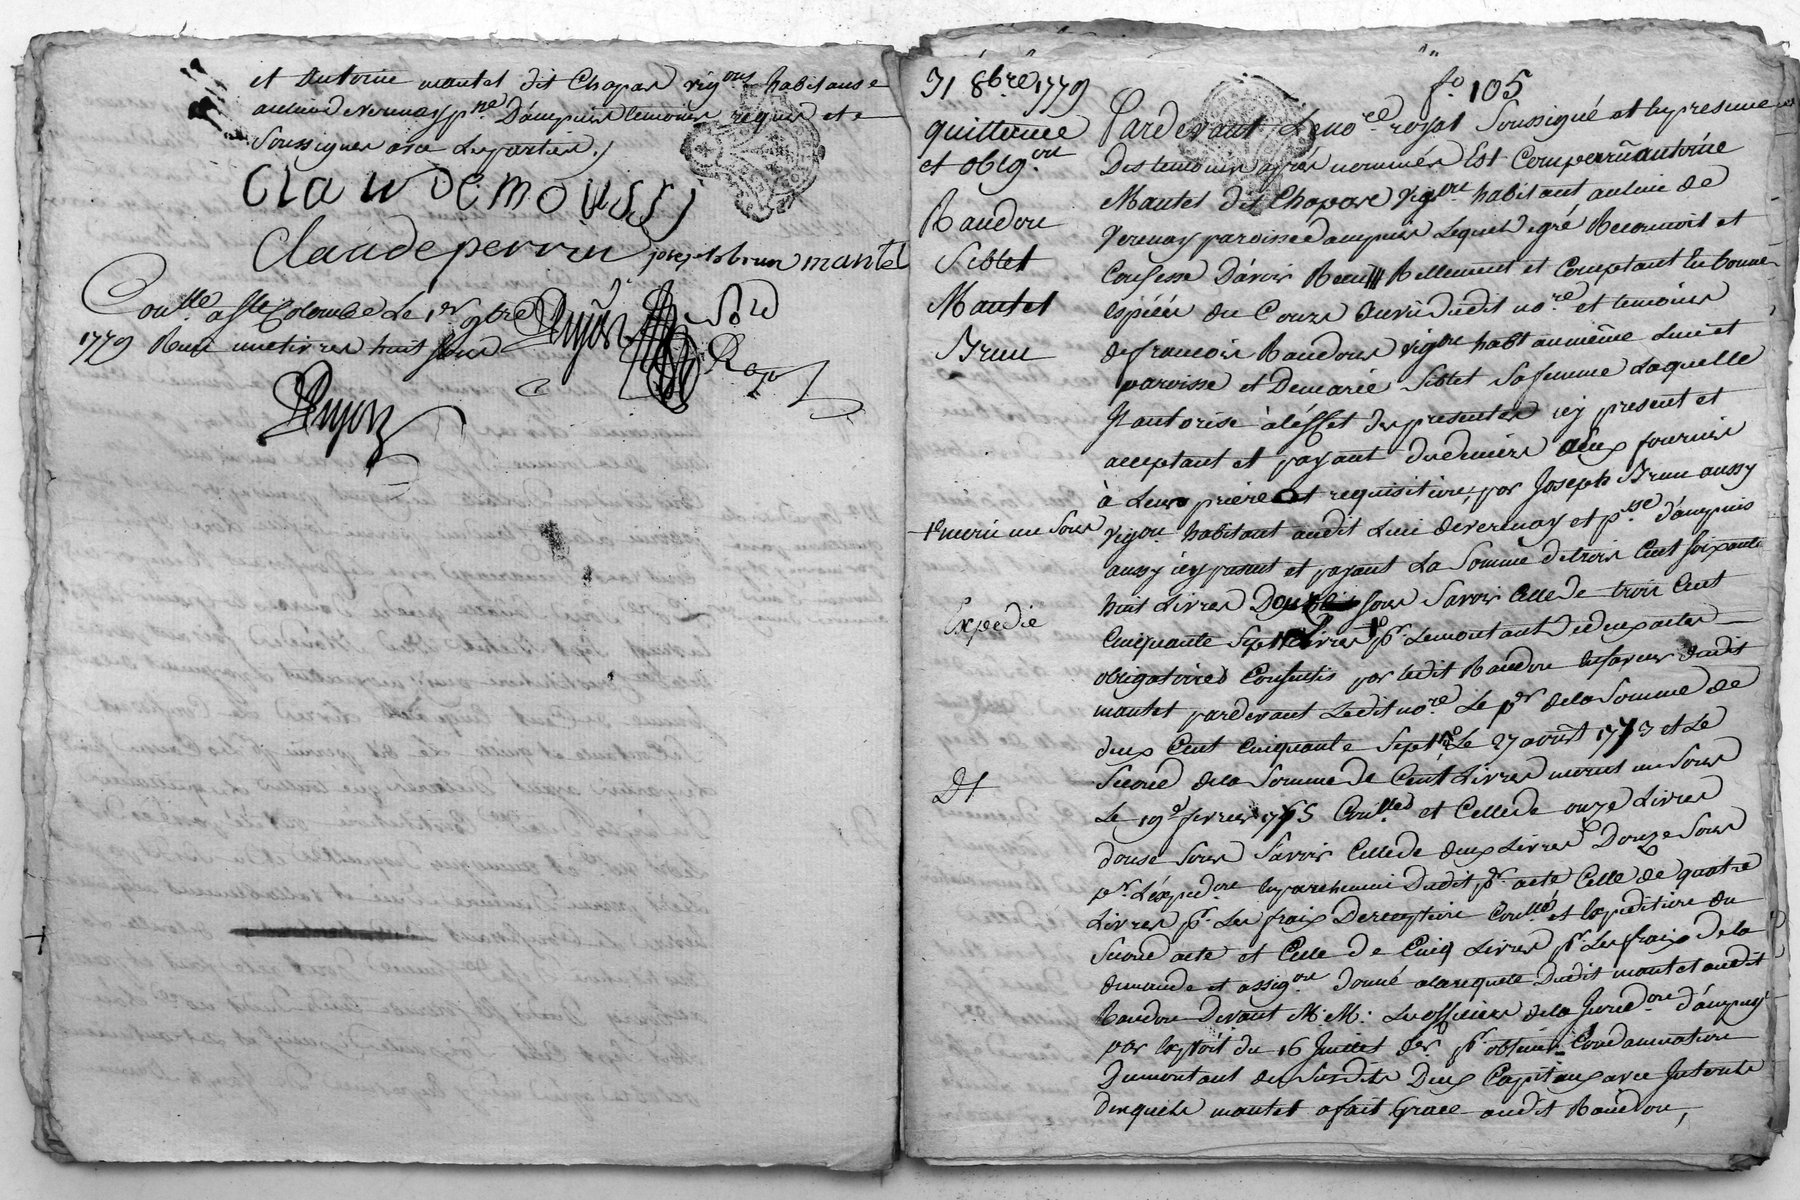 et Antoine mantel dit Chapas vigons habitans
aulieu de Verenay psse D'ampuis temoins requis et
Soussignes avec Les parties ./
CLaUDeMOUSSi
Claude perrin joseph brun mantel
Conlle a Ste Colombe Le 1er 9bre Dujon
1779 Recu une livres huit sous
Dujon
31 8bre 1779
quittance
et oblgon
Baudou
Siblet
Mantel
Brun
moin un Sous
Expedié
Dt
fo 105
Pardevant Le nore royal Soussigné et en presence
Des temoins après nommés Est Comparu antoine
Mantel dit Chapas vigon habitant aulieu de
Verenay paroisse dampuis Lequel degré Reconnoit et
Confesse D'avoir Recu Rellement et Comptant En bonnes
Espéces du Cours au vu dudit nore et temoins
de francois Baudou vigon habt au même Lieu et
paroisse et De marie Siblet Sa femme Laquelle
Il autorise à l'éffet des presentes icy present et
acceptant et payant des deniers à Eux fournis
à Leurs priere et requisition, par Joseph Brun aussy
vigon habitant audit Lieu de verenay et psse d'ampuis
aussy icy present et payant La Somme de trois Cent soixante
huit Livres Sous Savoir Celle de trois Cent
Cinquante Sept Livres pr Le montant de deux actes
obligatoires Consentis par ledit Baudou En faveur dudit
mantel pardevant Ledit nore Le per de la Somme de
deux Cent Cinquante Sept Le 27 avril 1773 et Le
Second de la Somme de Cent Livres moins un Sous
Le 19e fevrier 1765 Conlles et Celle de onze Livres
douse Sous Savoir Celle de deux Livres Douze Sous
pr L'expedon En parchemin Dudit pr acte Celle de quatre
Livres pr Les frais De reception Conlle et Expedition du
Second acte et Celle de Cinq Livres pr Les frais de la
demande et assigon donné a la requete Dudit mantel audit
Baudou Devant M.M. Les officiers de la Juridon d'ampuis
par Exploit du 16 Juillet der pr obtenir Condamnation
Du montant des Susdits Deux Capitaux avec Interets
desquels mantel a fait Grace audit Baudou,